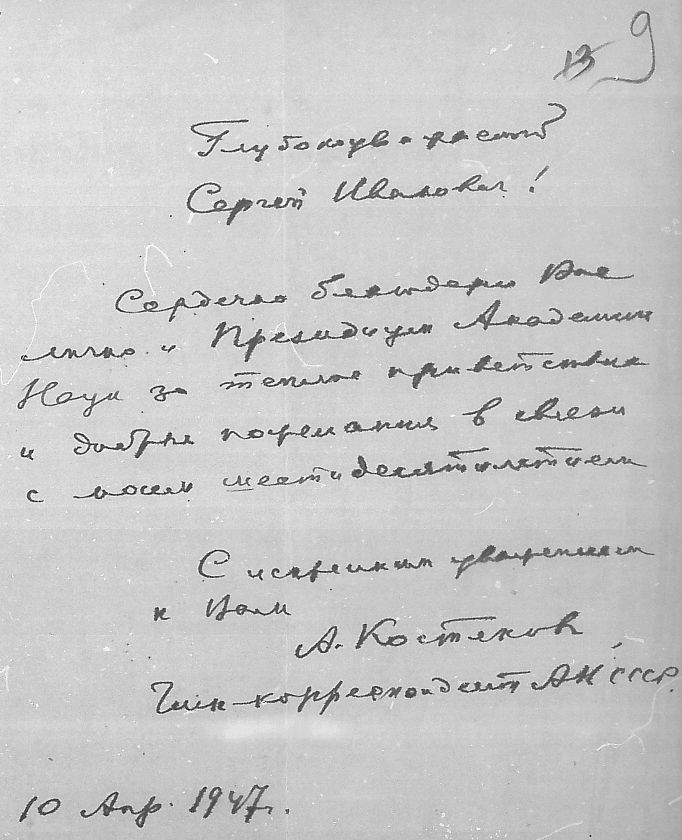 9
Глубокоуважаемый
Сергей Иванович!
Сердечно благодарю Вас
лично и Президиум Академии
Наук за теплое приветствие
и добрые пожелания в связи
с моим шестидесятилетием
С искренним уважением
к Вам
А. Костяков
Член-корреспондент АН СССР.
10 Апр. 1947г.